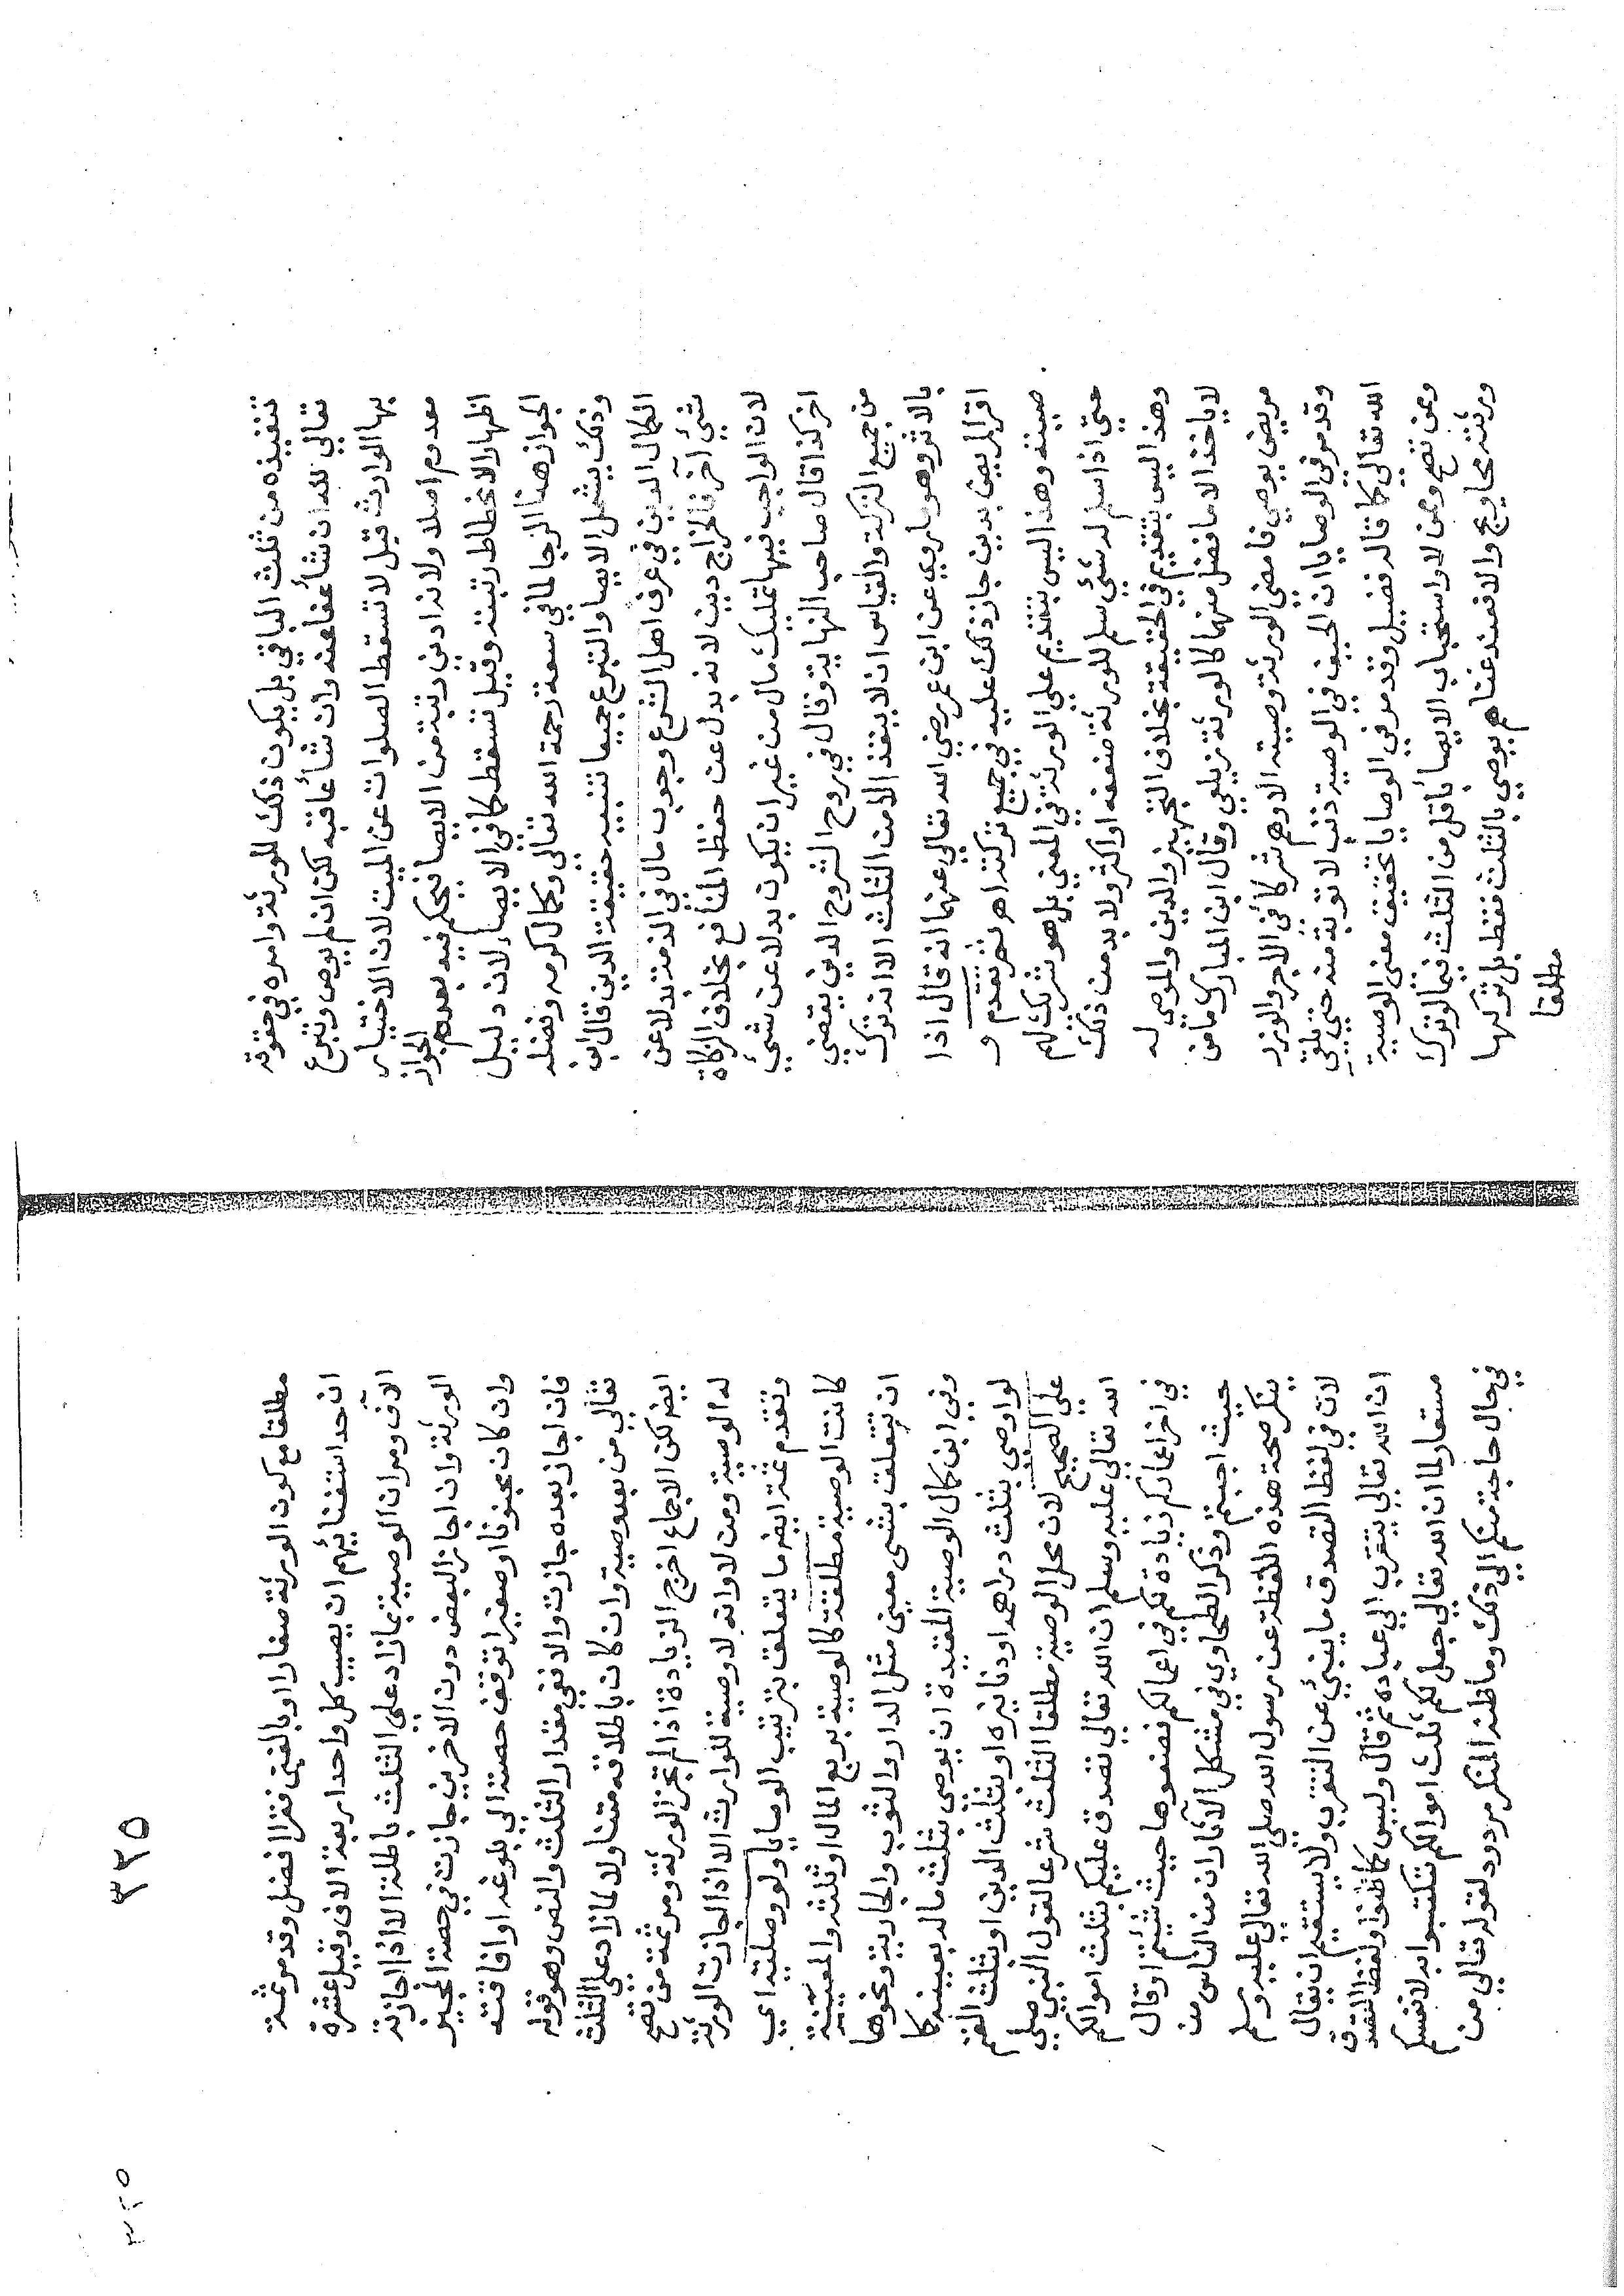 تنفيذه من ثلث الباقي بل يكون ذلك للورثة وامره في حقوقه
تعالى لله ان شأ عفا عنه وان شأ عاقبه لكن ان لم يوص وتبرع
بها الوارث قيل لا تسقط الصلوات عن الميت لان الاختيار
معدوم اصلا ولانه ادنى رتبة من الايصا فيحكم فيه بعدم الجواز
اظهارا لانحطاط رتبته وقيل تسقط كما في الايصاء لان دليل
الجواز هنا الرجا لما في سعة رحمة الله تعالى وكمال كرمه وفضله
وذلك يشمل الايصا والتبرع جميعا تنبيه حقيقة الدين قال ابن
الكمال الدين في عرف اهل الشرع وجوب مال في الذمة بدلا عن
شئ آخر فالخراج دين لانه بدل عن حفظ المنافع بخلاف الزكاة
لان الواجب فيها تمليك مال من غير ان يكون بدلا عن شئ
اخر كذا قال صاحب النهاية وقال في روح الشروح الدين يقضي
من جميع التركة والقياس ان لا ينفذ الا من الثلث الا انه ترك
بالاثر وهو ما روي عن ابن عمر رضي الله تعالى عنهما انه قال اذا
اقر المريض بدين جاز ذلك عليه في جميع تركته اهـ ثم تقدم و
صيته وهذا ليس بتقديم على الورثة في المعنى بل هو شريك لهم
حتى اذا سلم له شئ سلم للورثة ضعفه او اكثر ولا بد من ذلك
وهذا ليس بتقديم في الحقيقة بخلاف التجهيز والدين والموصى له
لا ياخذ الا ما فضل منهما كالورثة زيلعي وقال ابن المبارك ما من
مريض يوصي فامضى الورثة وصيته الا وهم شركائي في الاجر والوزر
وقد مر في الوصايا ان الحيف في الوصية ذنب لا توبة منه حتى يلقى
الله تعالى كما قاله فضيل وقد مر في الوصايا تحقيق معنى الوصية
وممن تصح وممن لا واستحباب الايصا بأقل من الثلث فيما لو ترك
ورثته محاويج والا فعند غناهم يوصي بالثلث فقط بل تركها
مطلقا
٣٢٥
مطلقا مع كون الورثة صغارا او بالغين فقرا افضل وقد مر ثمة
ان حد استغنائهم ان يصيب كل واحد اربعة الاف وقيل عشرة
الآف ومر ان الوصية بما زاد على الثلث باطلة الا اذا اجازته
الورثة وان اجاز البعض دون الاخرين جازت في حصة المجيز
وان كان مجنونا او صغيرا توقف حصته الى بلوغه او افاقته
فان اجاز بعده جازت والا ففي مقدار الثلث والنص وهو قوله
تعالى من بعد وصية وان كان باطلاقه متناولا لما زاد على الثلث
ايضا لكن الاجماع اخرج الزيادة اذا لم تجز الورثة ومر ثمة من تصح
له الوصية ومن لا وانه لا وصية للوارث الا اذا اجازت الورثة
وتقدم ثمة ايضا ما يتعلق بترتيب الوصايا ولو وصلية اي
كانت الوصية مطلقة كالوصية بربع المال او ثلثه والمعينة
ان تتعلق بشئ معين مثل الدار والثوب والجارية ونحوها
وفي ابن كمال الوصية المقيدة ان يوصي بثلث ماله بعينه كما
لو اوصى بثلث دراهمه او دنانيره او بثلث الدين او بثلث الغنم
على الصحيح لان محل الوصية مطلقا الثلث شرعا لقول النبي صلى
الله تعالى عليه وسلم ان الله تعالى تصدق عليكم بثلث اموالكم
في اخر اعماركم زيادة لكم في اعمالكم فضعوها حيث شئتم او قال
حيث احببتم وذكر الطحاوي في مشكل الآثار ان من الناس من
ينكر صحة هذه اللفظة عن رسول الله صلى الله تعالى عليه وسلم
لان في لفظ التصدق ما ينبئ عن التقرب ولا يستقيم ان يقال
ان الله تعالى يتقرب الى عباده ثم قال وليس كما ظنوا ولفظ التصدق
مستعار لما ان الله تعالى جعل لكم ثلث اموالكم تكتسبوا به لانفسكم
في حال حاجة منكم الى ذلك وما ظنه المنكر مردود لقوله تعالى من